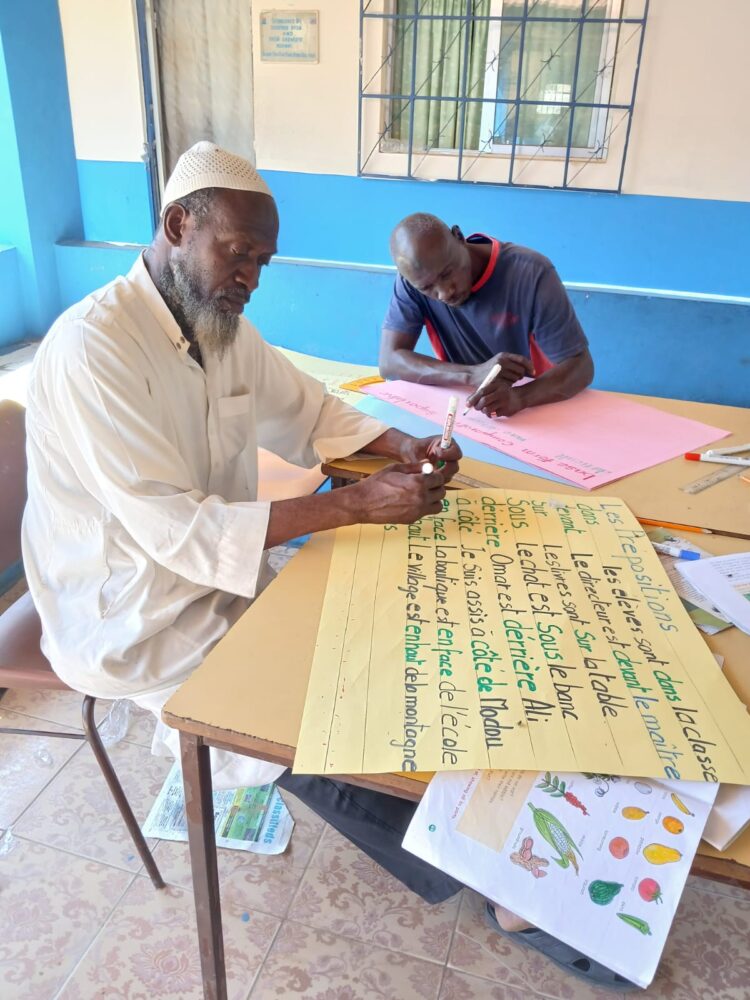 Les Prépositions
dans les élèves sont dans la classe
devant Le directeur est devant le maître
Sur Les livres sont Sur la table
Sous Le chat est Sous le banc
derrière Omar est derrière Ali
à côté Je Suis assis à côté de Modou
en face La boutique est en face de l'école
haut Le village est en haut de la montagne
base form Comparative Superlative
difficult more
Classifieds